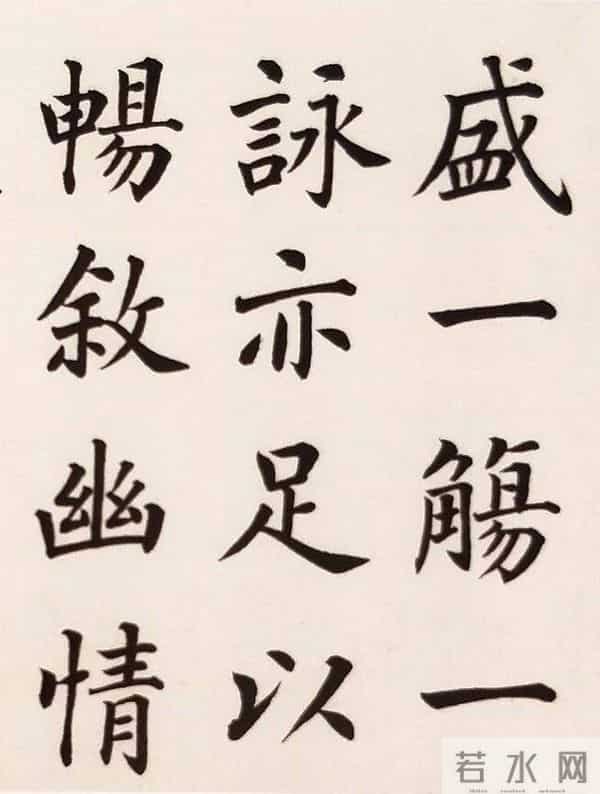 盛一觴一
詠亦足以
暢敘幽情
若水网